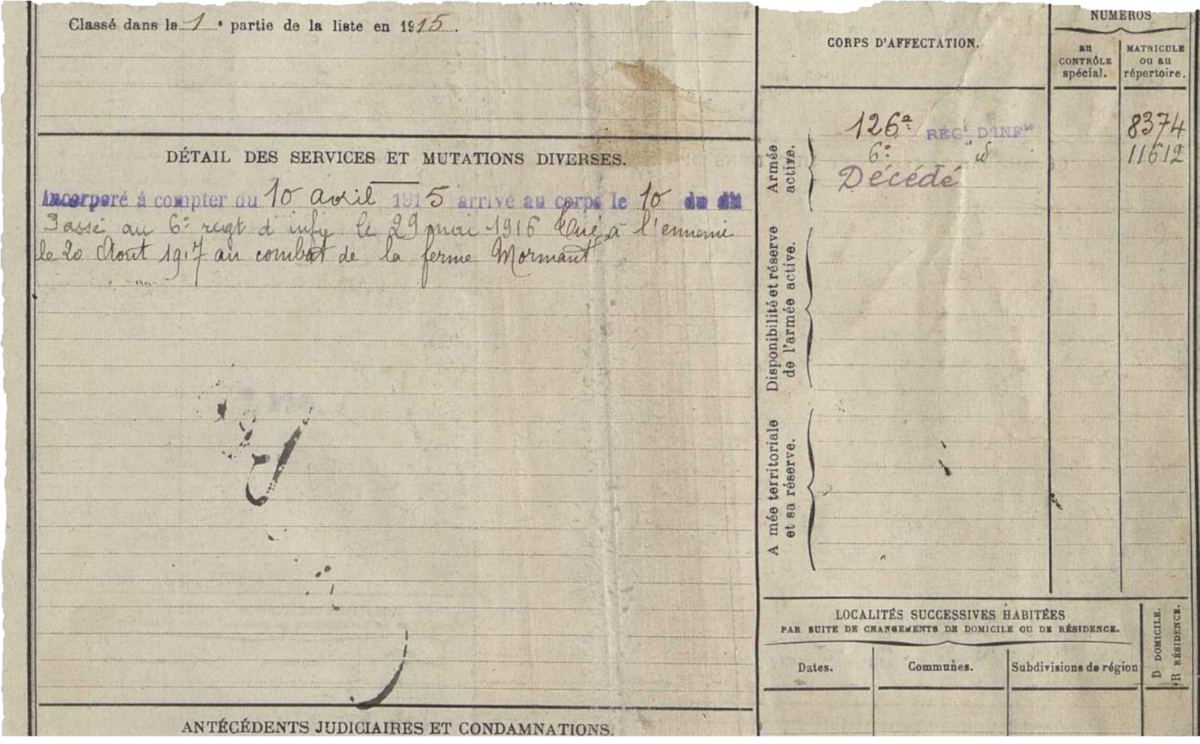 Classé dans la 1 e partie de la liste en 1915.
DÉTAIL DES SERVICES ET MUTATIONS DIVERSES.
Incorporé à compter du 10 avril 1915 arrivé au corps le 10 du dit
Passé au 6e regt d'infie le 29 mai 1916 Tué à l'ennemi
le 20 Aout 1917 au combat de la ferme Mormant.
ANTÉCÉDENTS JUDICIAIRES ET CONDAMNATIONS.
CORPS D'AFFECTATION.
NUMÉROS
au CONTRÔLE spécial.
MATRICULE ou au répertoire.
Armée active.
126e RÉGt D'INFie 8374
6e id 11612
Décédé
Disponibilité et réserve de l'armée active.
A mée territoriale et sa réserve.
LOCALITÉS SUCCESSIVES HABITÉES
PAR SUITE DE CHANGEMENTS DE DOMICILE OU DE RÉSIDENCE.
Dates.
Communes.
Subdivisions de région
D DOMICILE.
R RÉSIDENCE.